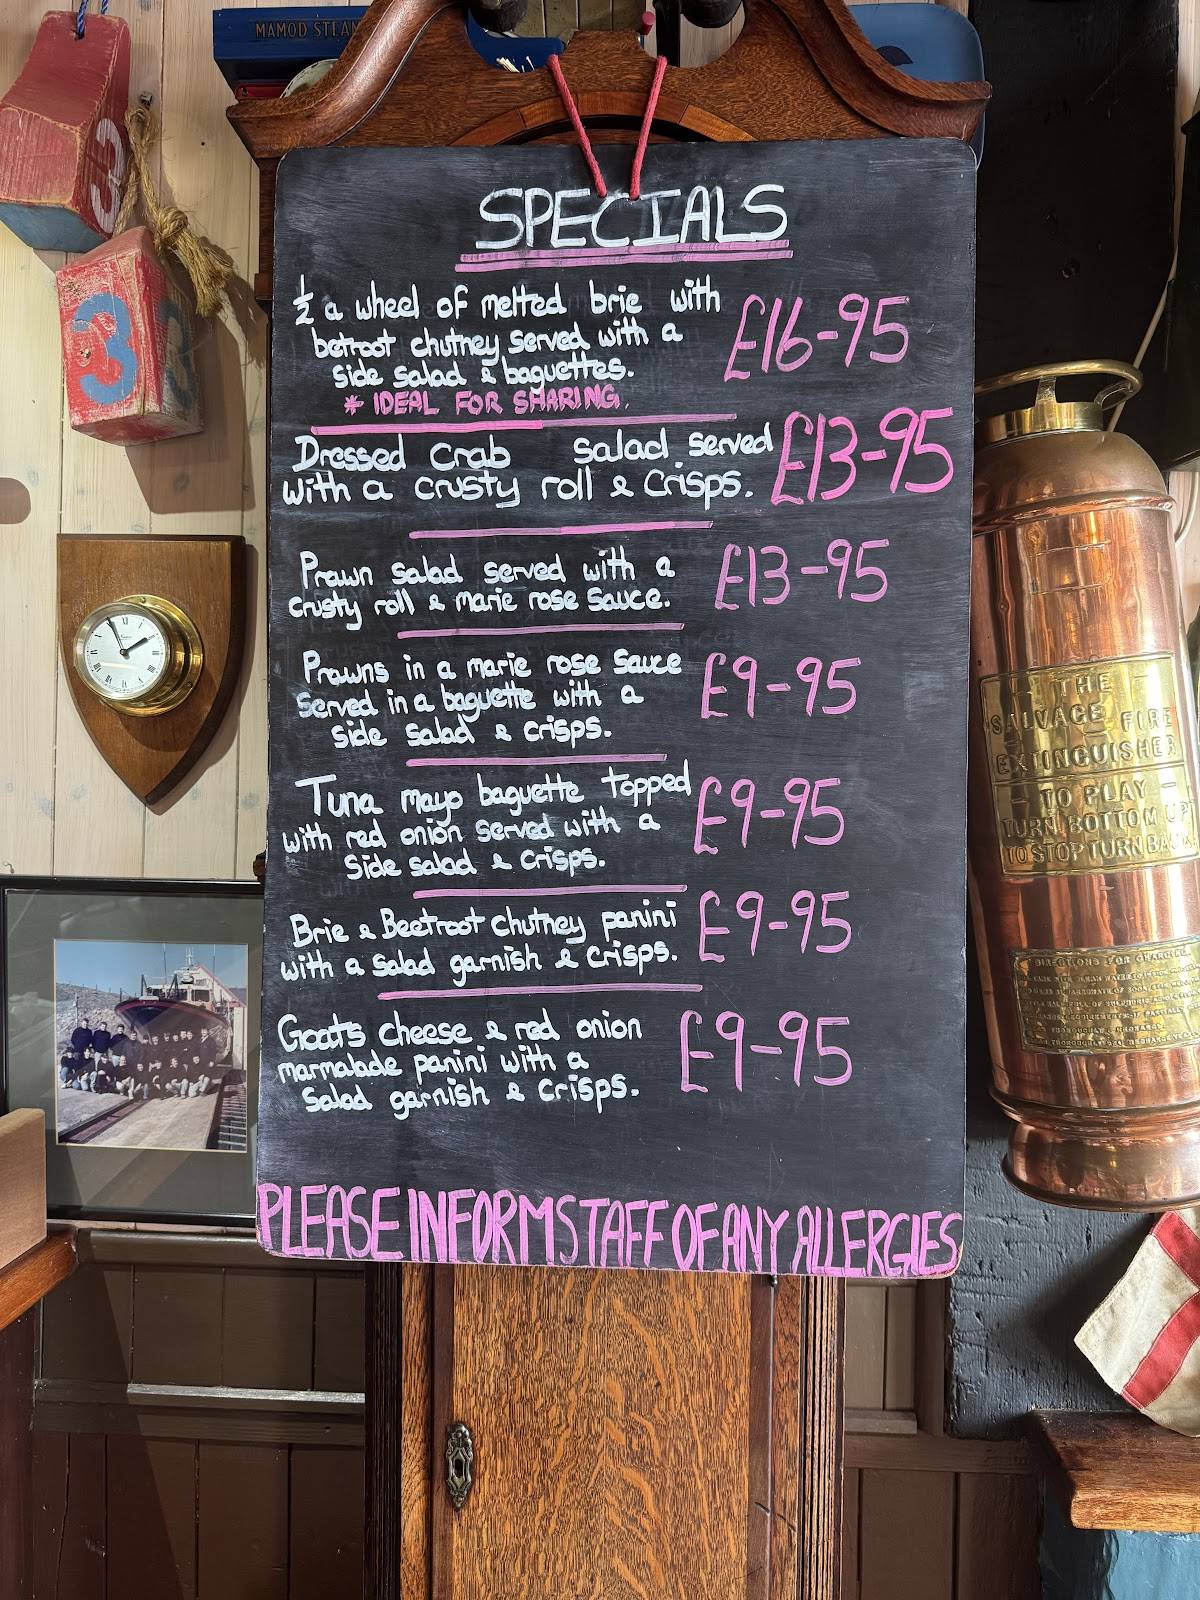 MAMOD STEAM
3
3
SPECIALS
½ a wheel of melted brie with
betroot chutney served with a
side salad & baguettes.
* IDEAL FOR SHARING.
£16-95
Dressed crab salad served
with a crusty roll & crisps.
£13-95
Prawn salad served with a
crusty roll & marie rose sauce.
£13-95
Prawns in a marie rose sauce
served in a baguette with a
side salad & crisps.
£9-95
Tuna mayo baguette topped
with red onion served with a
side salad & crisps.
£9-95
Brie & Beetroot chutney panini
with a salad garnish & crisps.
£9-95
Goats cheese & red onion
marmalade panini with a
salad garnish & crisps.
£9-95
PLEASE INFORM STAFF OF ANY ALLERGIES
- THE -
SALVAGE FIRE
EXTINGUISHER
- TO PLAY -
TURN BOTTOM UP
TO STOP TURN BACK
DIRECTIONS FOR CHARGING